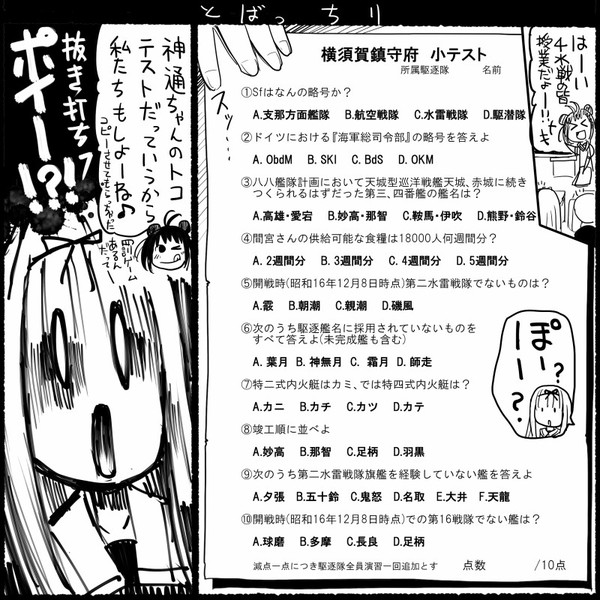 とばっちり
はーい
4水戦の皆
授業だよー!!
横須賀鎮守府 小テスト
所属駆逐隊 名前
①Sfはなんの略号か？
A.支那方面艦隊 B.航空戦隊 C.水雷戦隊 D.駆潜隊
②ドイツにおける『海軍総司令部』の略号を答えよ
A. ObdM B. SKl C. BdS D. OKM
③八八艦隊計画において天城型巡洋戦艦天城、赤城に続き
つくられるはずだった第三、四番艦の艦名は？
A.高雄・愛宕 B.妙高・那智 C.鞍馬・伊吹 D.熊野・鈴谷
④間宮さんの供給可能な食糧は18000人何週間分？
A. 2週間分 B. 3週間分 C. 4週間分 D. 5週間分
⑤開戦時(昭和16年12月8日時点)第二水雷戦隊でないものは？
A.霰 B.朝潮 C.親潮 D.磯風
⑥次のうち駆逐艦名に採用されていないものを
すべて答えよ(未完成艦も含む)
A. 葉月 B. 神無月 C. 霜月 D. 師走
⑦特二式内火艇はカミ、では特四式内火艇は？
A.カニ B.カチ C.カツ D.カテ
⑧竣工順に並べよ
A.妙高 B.那智 C.足柄 D.羽黒
⑨次のうち第二水雷戦隊旗艦を経験していない艦を答えよ
A.夕張 B.五十鈴 C.鬼怒 D.名取 E.大井 F.天龍
⑩開戦時(昭和16年12月8日時点)での第16戦隊でない艦は？
A.球磨 B.多摩 C.長良 D.足柄
減点一点につき駆逐隊全員演習一回追加とす 点数 /10点
スッ…
ぽいー？？
神通ちゃんのトコ
テストだっていうから
私たちもしよーね♪
コピーさせてもらっちゃった
罰ゲーム
あるん
だって
抜き打ち
ポイー!?!?